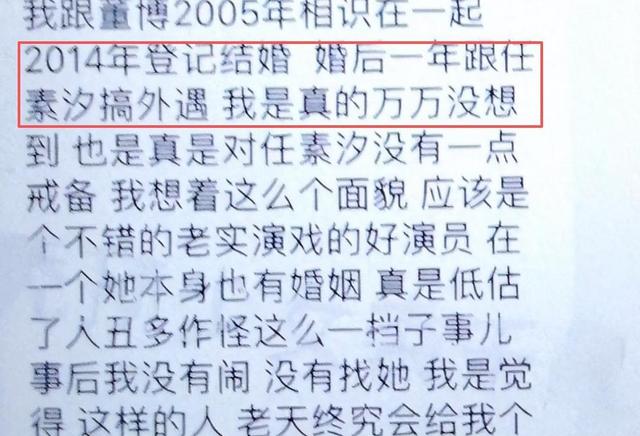 我跟董博2005年相识在一起
2014年登记结婚 婚后一年跟任
素汐搞外遇 我是真的万万没想
到 也是真是对任素汐没有一点
戒备 我想着这么个面貌 应该是
个不错的老实演戏的好演员 在
一个她本身也有婚姻 真是低估
了人丑多作怪这么一档子事儿
事后我没有闹 没有找她 我是觉
得 这样的人 老天终究会给我个